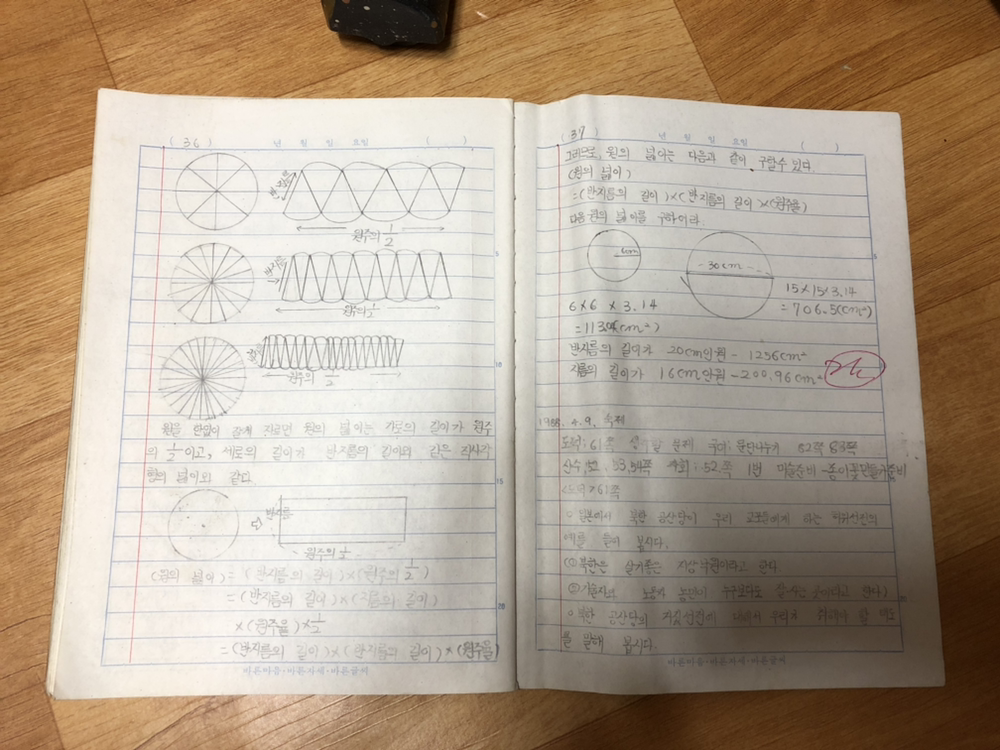 (36) 년 월 일 요일 ( )
반지름
원주의 1/2
반지름
원주의 1/2
원주의 1/2
원을 한없이 잘게 자르면 원의 넓이는 가로의 길이가 원주
의 1/2이고, 세로의 길이가 반지름의 길이와 같은 직사각
형의 넓이와 같다.
반지름
원주의 1/2
(원의 넓이) = (반지름의 길이)×(원주의 1/2)
= (반지름의 길이)×(지름의 길이)
×(원주율)×1/2
=(반지름의 길이)×(반지름의 길이)×(원주율)
바른마음·바른자세·바른글씨
(37) 년 월 일 요일 ( )
그러므로, 원의 넓이는 다음과 같이 구할수 있다.
(원의 넓이)
=(반지름의 길이)×(반지름의 길이)×(원주율)
다음 원의 넓이를 구하여라.
6cm
30cm
15×15×3.14
=706.5(cm²)
6×6×3.14
=113.04(cm²)
반지름의 길이가 20cm인원- 1256cm²
지름의 길이가 16cm인원-200.96cm²
1988. 4. 9. 숙제
도덕: 61쪽 문제 국어: 문단나누기 82쪽 83쪽
산수: 52, 53, 54쪽 사회: 52쪽 1번 미술준비-종이꽃만들기준비
<도덕>61쪽
○일본에서 북한 공산당이 우리 교포들에게 하는 선전의
예를 들어 봅시다.
①북한은 살기좋은 지상낙원이라고 한다.
○북한 공산당의 선전에 대해서 우리가 취해야 할 태도
를 말해 봅시다.
바른마음·바른자세·바른글씨